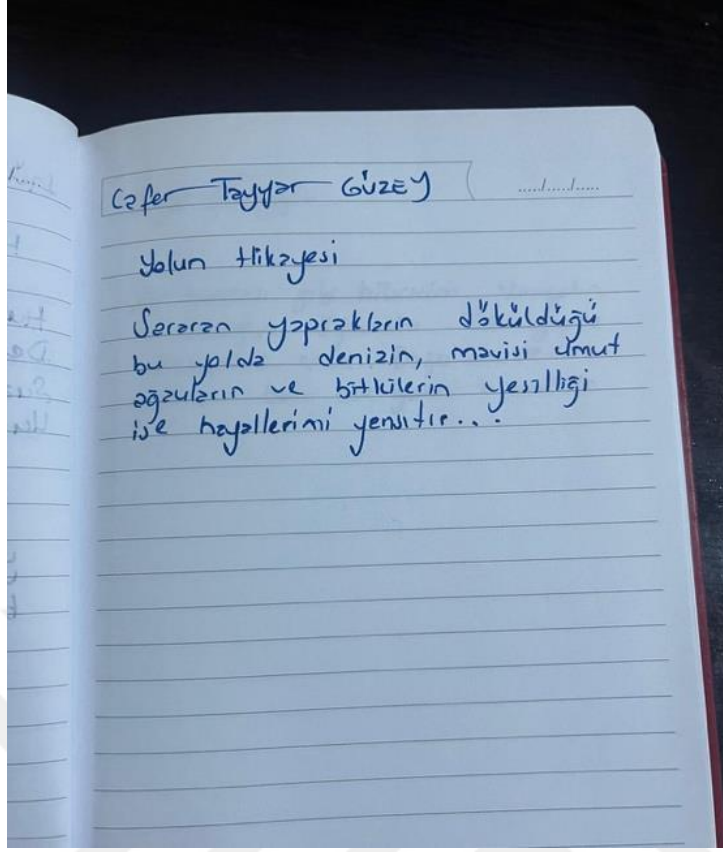 Cafer Tayyar GÜZEY ...../...../.....
Yolun Hikayesi
Sararan yaprakların döküldüğü
bu yolda denizin, mavisi umut
ağaçların ve bitkilerin yeşilliği
ise hayallerimi yansıtır...